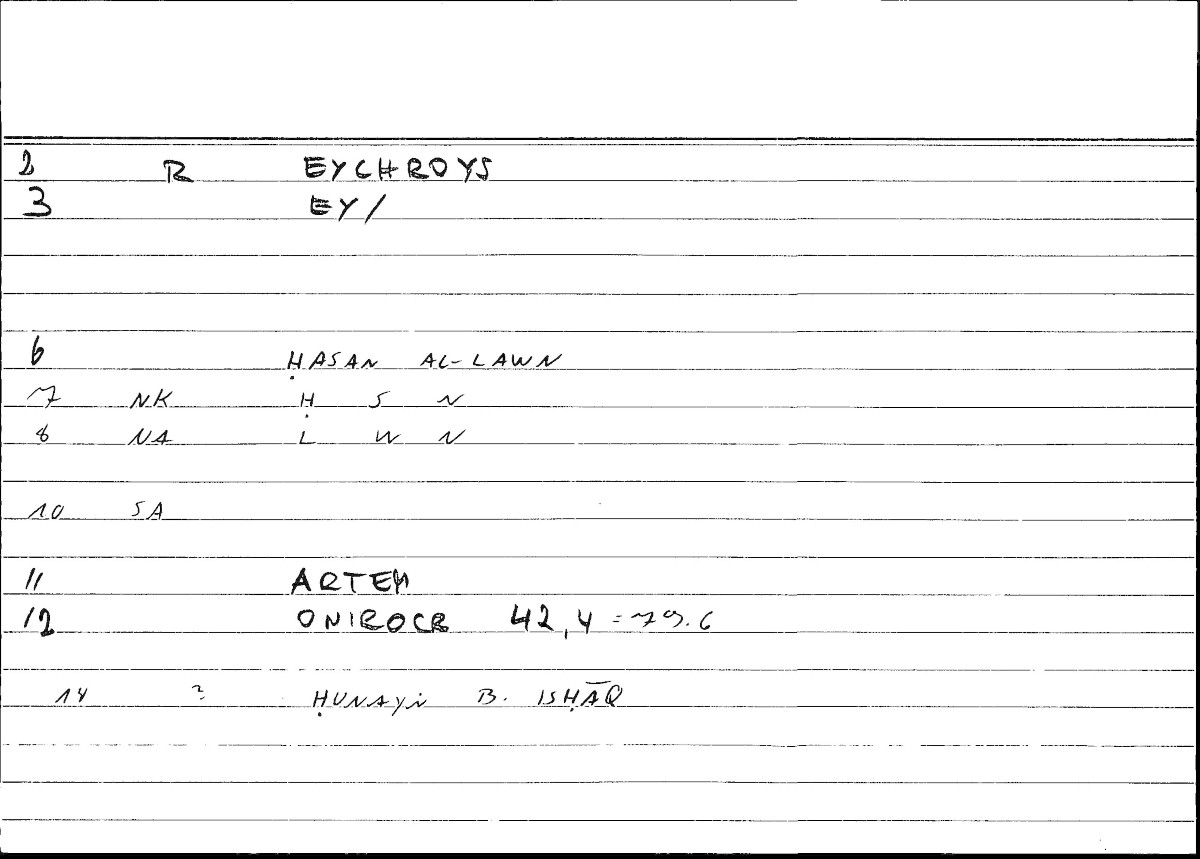 2 R EYCHROYS
3 EY/
6 ḤASAN AL-LAWN
7 NK Ḥ S N
8 NA L W N
10 SA
11 ARTEM
12 ONIROCR 42,4 = 79.6
14 ? ḤUNAYN B. ISḤĀQ